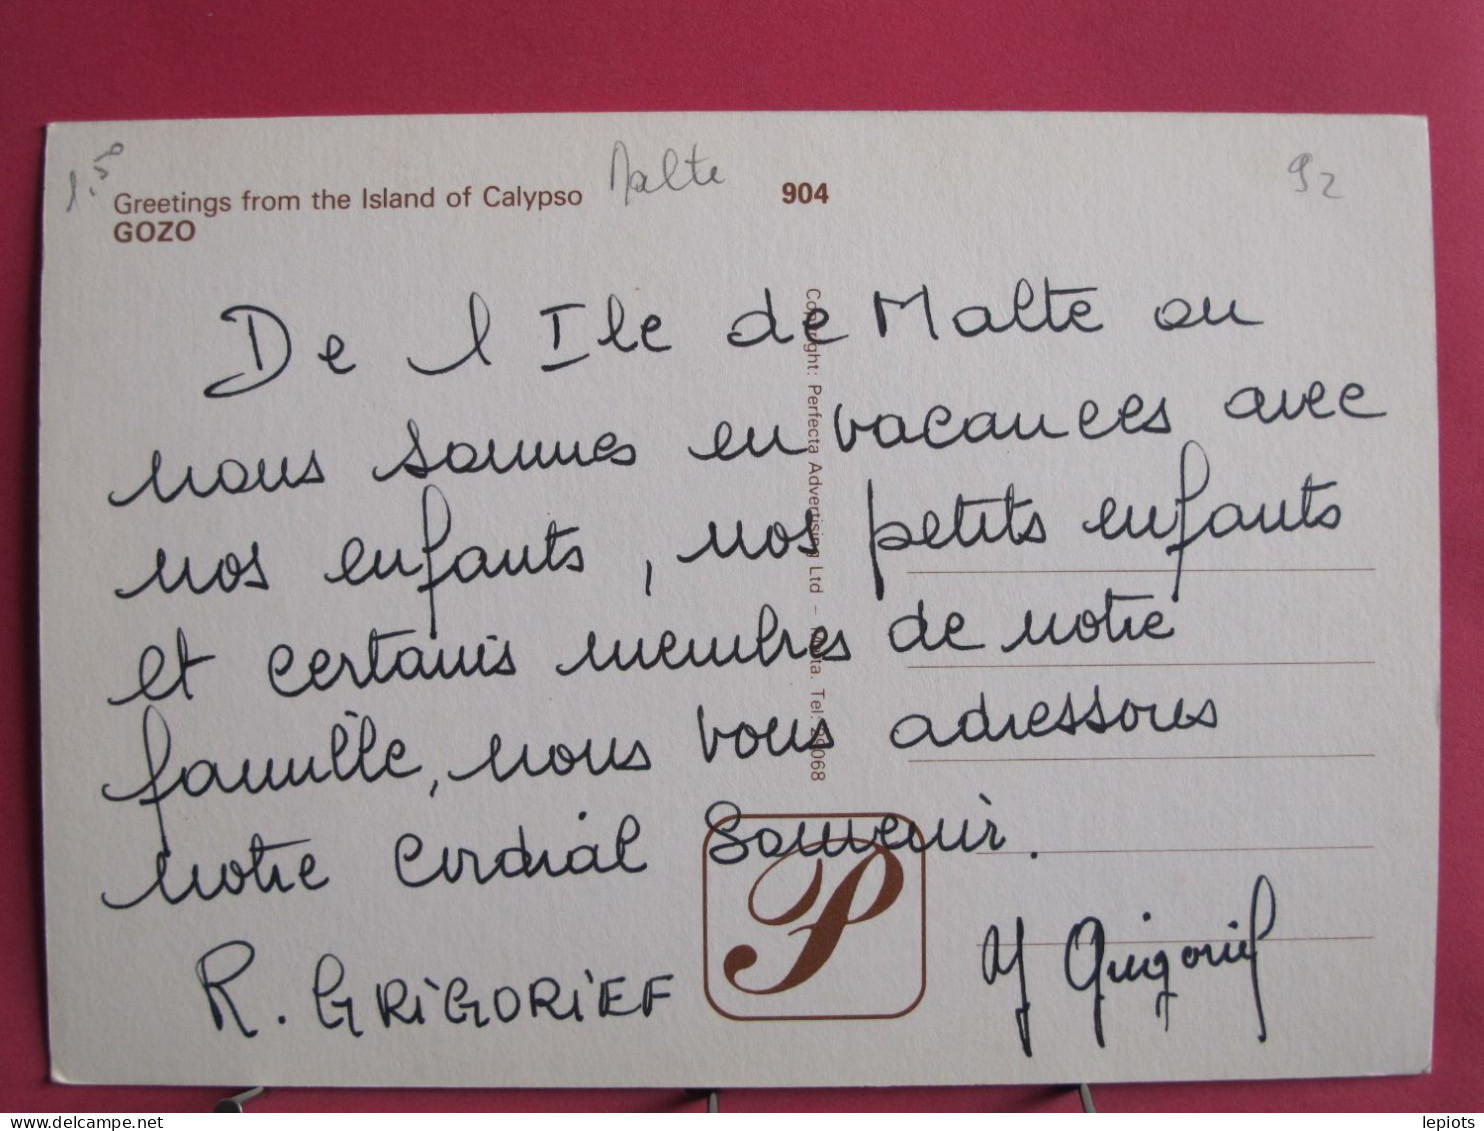 1.50
Malte
92
Greetings from the Island of Calypso
904
GOZO
De l Ile de Malte ou
nous sommes en vacances avec
nos enfants, nos petits enfants
et certains membres de notre
famille, nous vous adressons
notre cordial Souvenir.
R. GRIGORIEF
Y Grigorief
Copyright: Perfecta Advertising Ltd – Malta. Tel:
P
lepiots